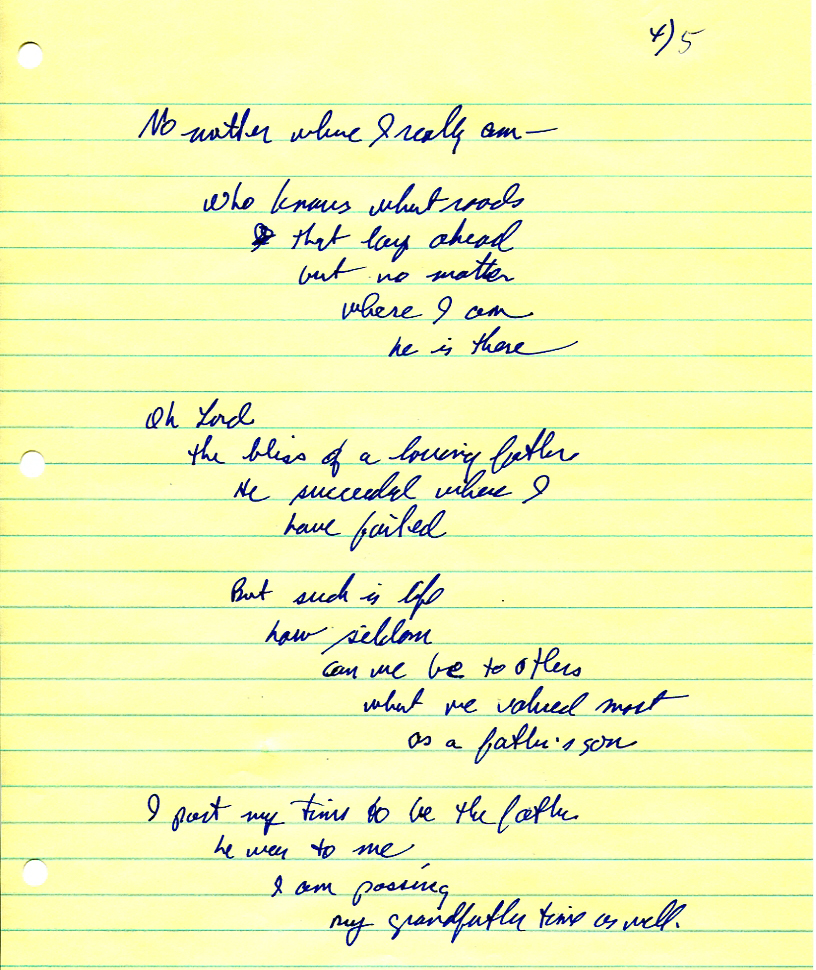 4/5
No matter where I really am—
Who knows what roads
that lay ahead
but no matter
where I am
he is there
Oh Lord
the bliss of a loving father
He succeeded where I
have failed
But such is life
how seldom
can we be to others
what we valued most
as a father's son
I past my time to be the father
he was to me
I am passing
my grandfather time as well.